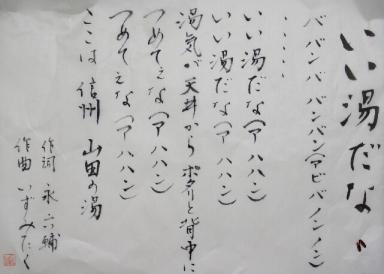 いい湯だなゝ
ババンババンバン(アビバノンノン)
いい湯だな(アハハン)
いい湯だな(アハハン)
湯気が天井からポタリと背中に
つめてえな(アハハン)
つめてえな(アハハン)
ここは信州 山田の湯
作詞 永 六輔
作曲 いずみたく